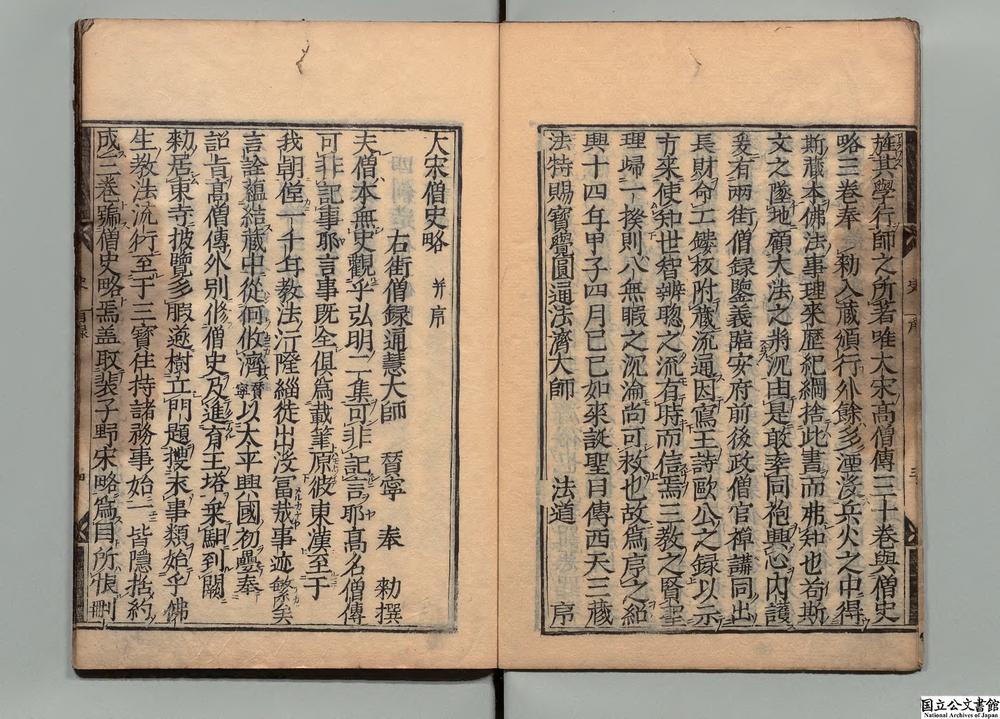 旌其學行師之所若唯大宋高僧傳三十卷與僧史
略三卷奉 勅入藏頒行外餘多湮沒兵火之中得
斯藏本佛法事理來歷紀綱捨此書而弗知也苟斯
文之墜地顧大法之將沉由是敢率同袍興心內護
爰有兩街僧録鑒義臨安府前後政僧官禪講同出
長財命工鏤板附藏流通因寫王詩歐公之録以示
方來使知世智辨聰之流有時而信焉三教之賢聖
理歸一揆則八無暇之沉淪尚可救也故為序之紹
興十四年甲子四月己巳如來誕聖日傳西天三藏
法特賜寶覺圓通法濟大師 法道 序
大宋僧史略 并序
右街僧録通慧大師 賛寧 奉 勅撰
夫僧本無史觀乎弘明二集可非記言耶高名僧傳
可非記事耶言事既全俱為載筆原彼東漢至于
我朝僅一千年教法污隆緇徒出沒冨哉事迹繁矣
言詮蘊結藏中從何攸濟賛寧以太平興國初疊奉
詔旨高僧傳外別修僧史及進育王塔乘馹到闕
勅居東寺披覽多暇遂樹立門題搜求事類始乎佛
生教法流行至于三寶住持諸務事始一皆隱括約
成三卷號僧史略焉盖取裴子野宋略為目所恨删
史 序 三
史 目録 四
国立公文書館
National Archives of Japan